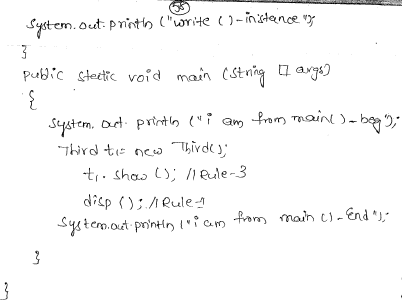 35
System.out.println ("write ()-instance");
}
public static void main (String [] args)
{
System.out.println ("i am from main()-beg");
Third t1= new Third();
t1.show (); //Rule-3
disp (); //Rule-1
System.out.println ("i am from main ()-End");
}
}